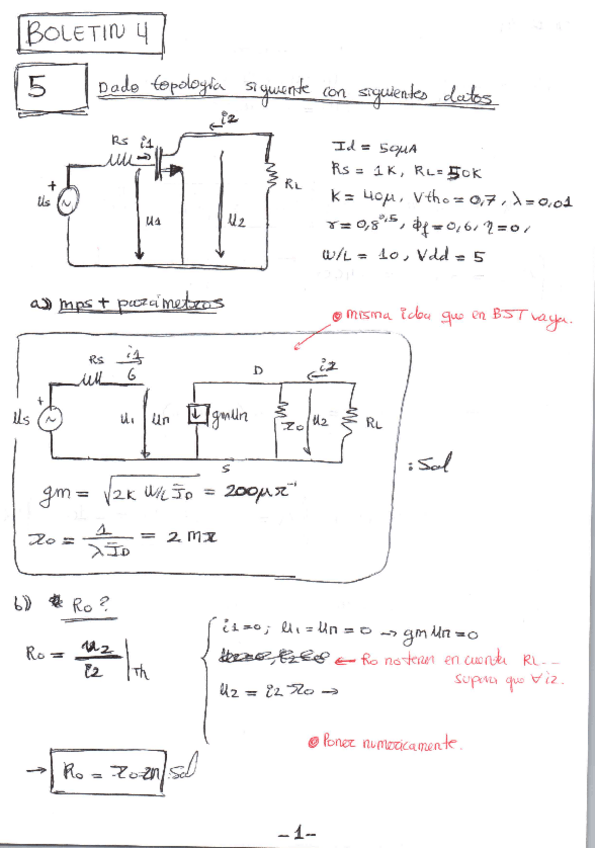 BOLETIN 4
5
Dado topología siguiente con siguientes datos
Rs i1
i2
+
us
u1
u2
RL
Id = 50μA
Rs = 1K, RL = 50K
K = 40μ, Vtho = 0,7, λ = 0,01
r = 0,8^0,5, ϕf = 0,6, η = 0,
W/L = 10, Vdd = 5
a) mps + parámetros
misma idea que en BJT vaya.
Rs i1
G
D
i2
+
us
u1
uπ
gmuπ
ro
u2
RL
S
: Sol
gm = √2K W/L ID = 200μΩ⁻¹
ro = 1/λID = 2MΩ
b) Ro?
Ro = u2/i2 |Th
i1=0; u1 = uπ = 0 → gmuπ = 0
← Ro no tener en cuenta RL --
supera que ∀ i2.
u2 = i2 ro →
Poner numericamente.
→ Ro = ro Sol
-1-